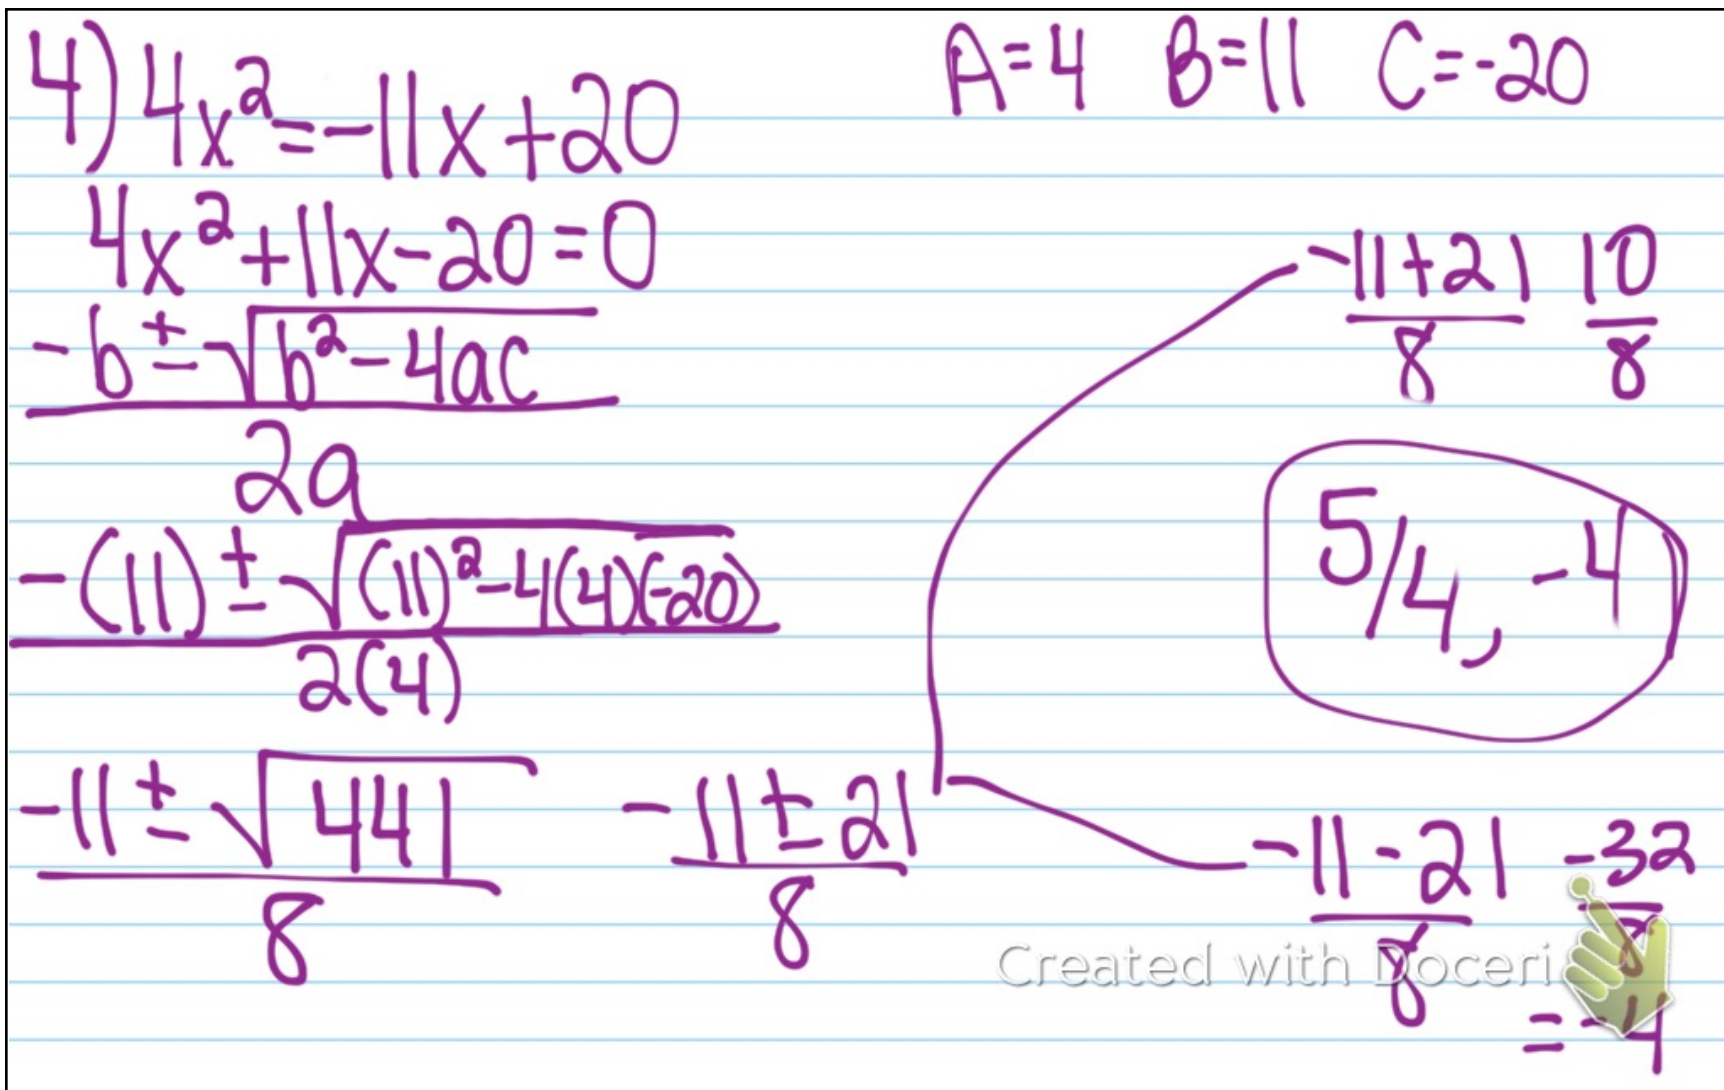 4) 4x²=-11x+20
A=4 B=11 C=-20
4x²+11x-20=0
-b±√b²-4ac
2a
-(11)±√(11)²-4(4)(-20)
2(4)
-11±√441
8
-11±21
8
-11+21 10
8 8
5/4, -4
-11-21 -32
8 8
=-4
Created with Doceri